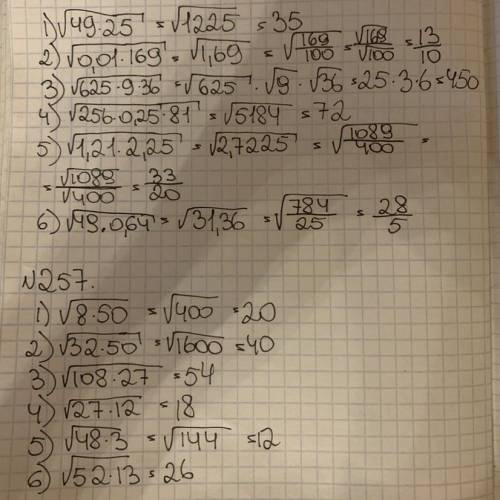 1) √49·25 = √1225 = 35
2) √0,01·169 = √1,69 = √169/100 = √169/√100 = 13/10
3) √625·9·36 = √625 · √9 · √36 = 25·3·6 = 450
4) √256·0,25·81 = √5184 = 72
5) √1,21·2,25 = √2,7225 = √1089/400 =
= √1089/√400 = 33/20
6) √49·0,64 = √31,36 = √784/25 = 28/5
№257.
1) √8·50 = √400 = 20
2) √32·50 = √1600 = 40
3) √108·27 = 54
4) √27·12 = 18
5) √48·3 = √144 = 12
6) √52·13 = 26